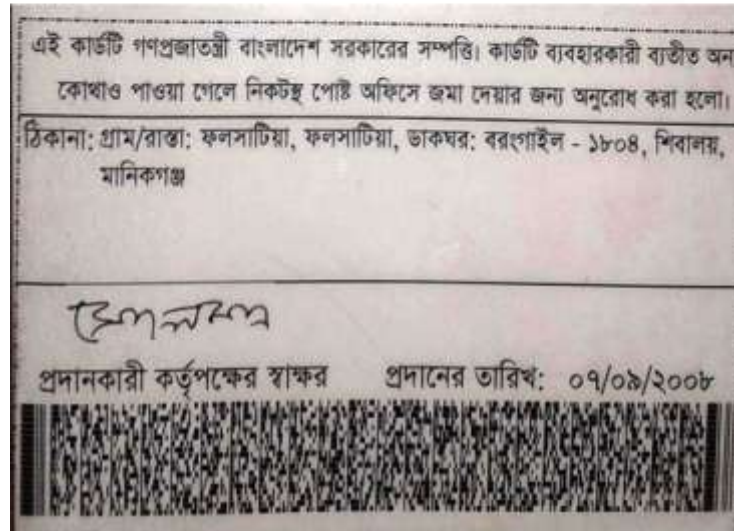 এই কার্ডটি গণপ্রজাতন্ত্রী বাংলাদেশ সরকারের সম্পত্তি। কার্ডটি ব্যবহারকারী ব্যতীত অন
কোথাও পাওয়া গেলে নিকটস্থ পোষ্ট অফিসে জমা দেয়ার জন্য অনুরোধ করা হলো।
ঠিকানা: গ্রাম/রাস্তা: ফলসাটিয়া, ফলসাটিয়া, ডাকঘর: বরংগাইল - ১৮০৪, শিবালয়,
মানিকগঞ্জ
প্রদানকারী কর্তৃপক্ষের স্বাক্ষর প্রদানের তারিখ: ০৭/০৯/২০০৮